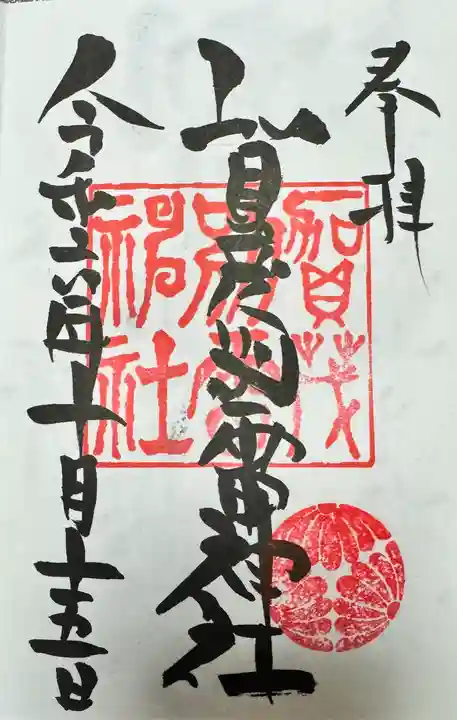 奉拝
賀茂別雷神社
令和年十月十五日
賀茂
別雷
神社